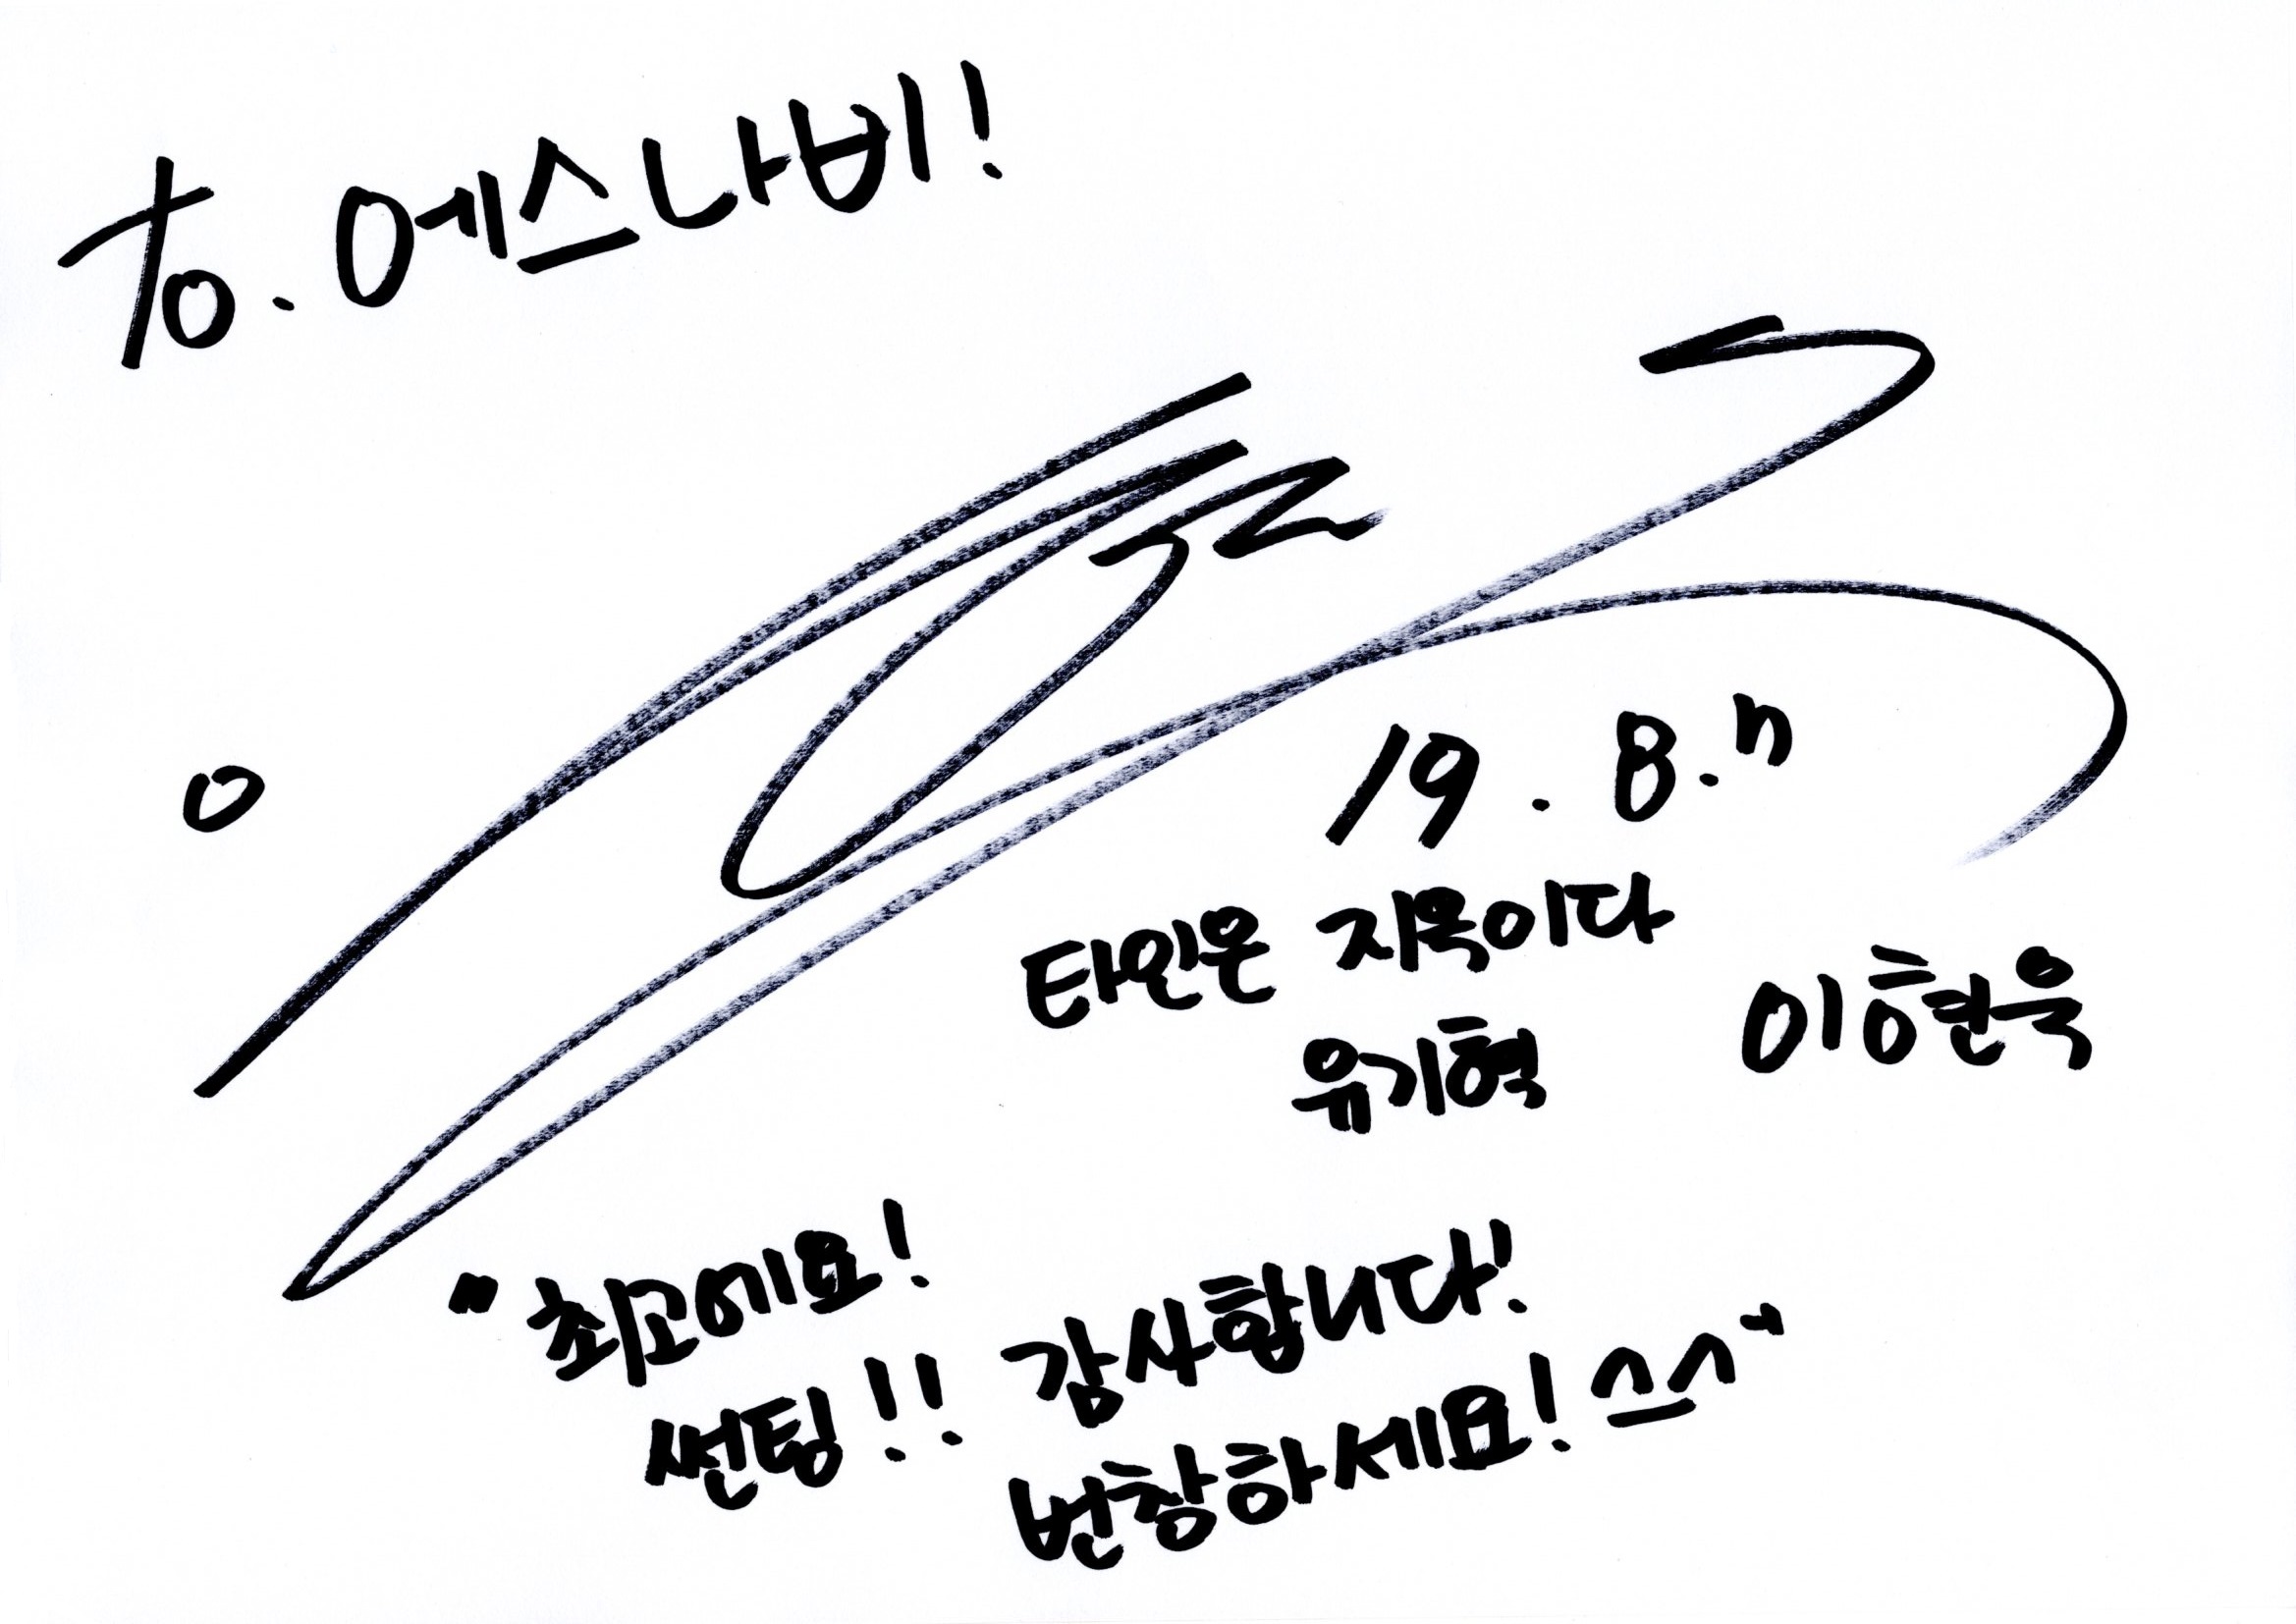 to. 에스나비!
19. 8. 17
타인은 지옥이다
유기혁 이현욱
"최고에요!
썬팅!! 감사합니다!
번창하세요! ^^"